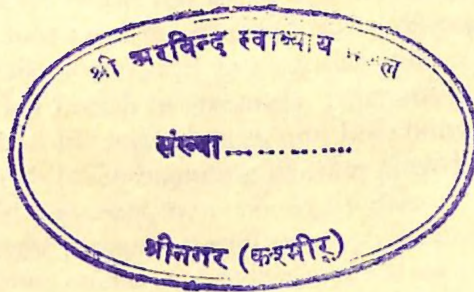 श्री अरविन्द स्वाध्याय मण्डल
संख्या..............
श्रीनगर (कश्मीर)